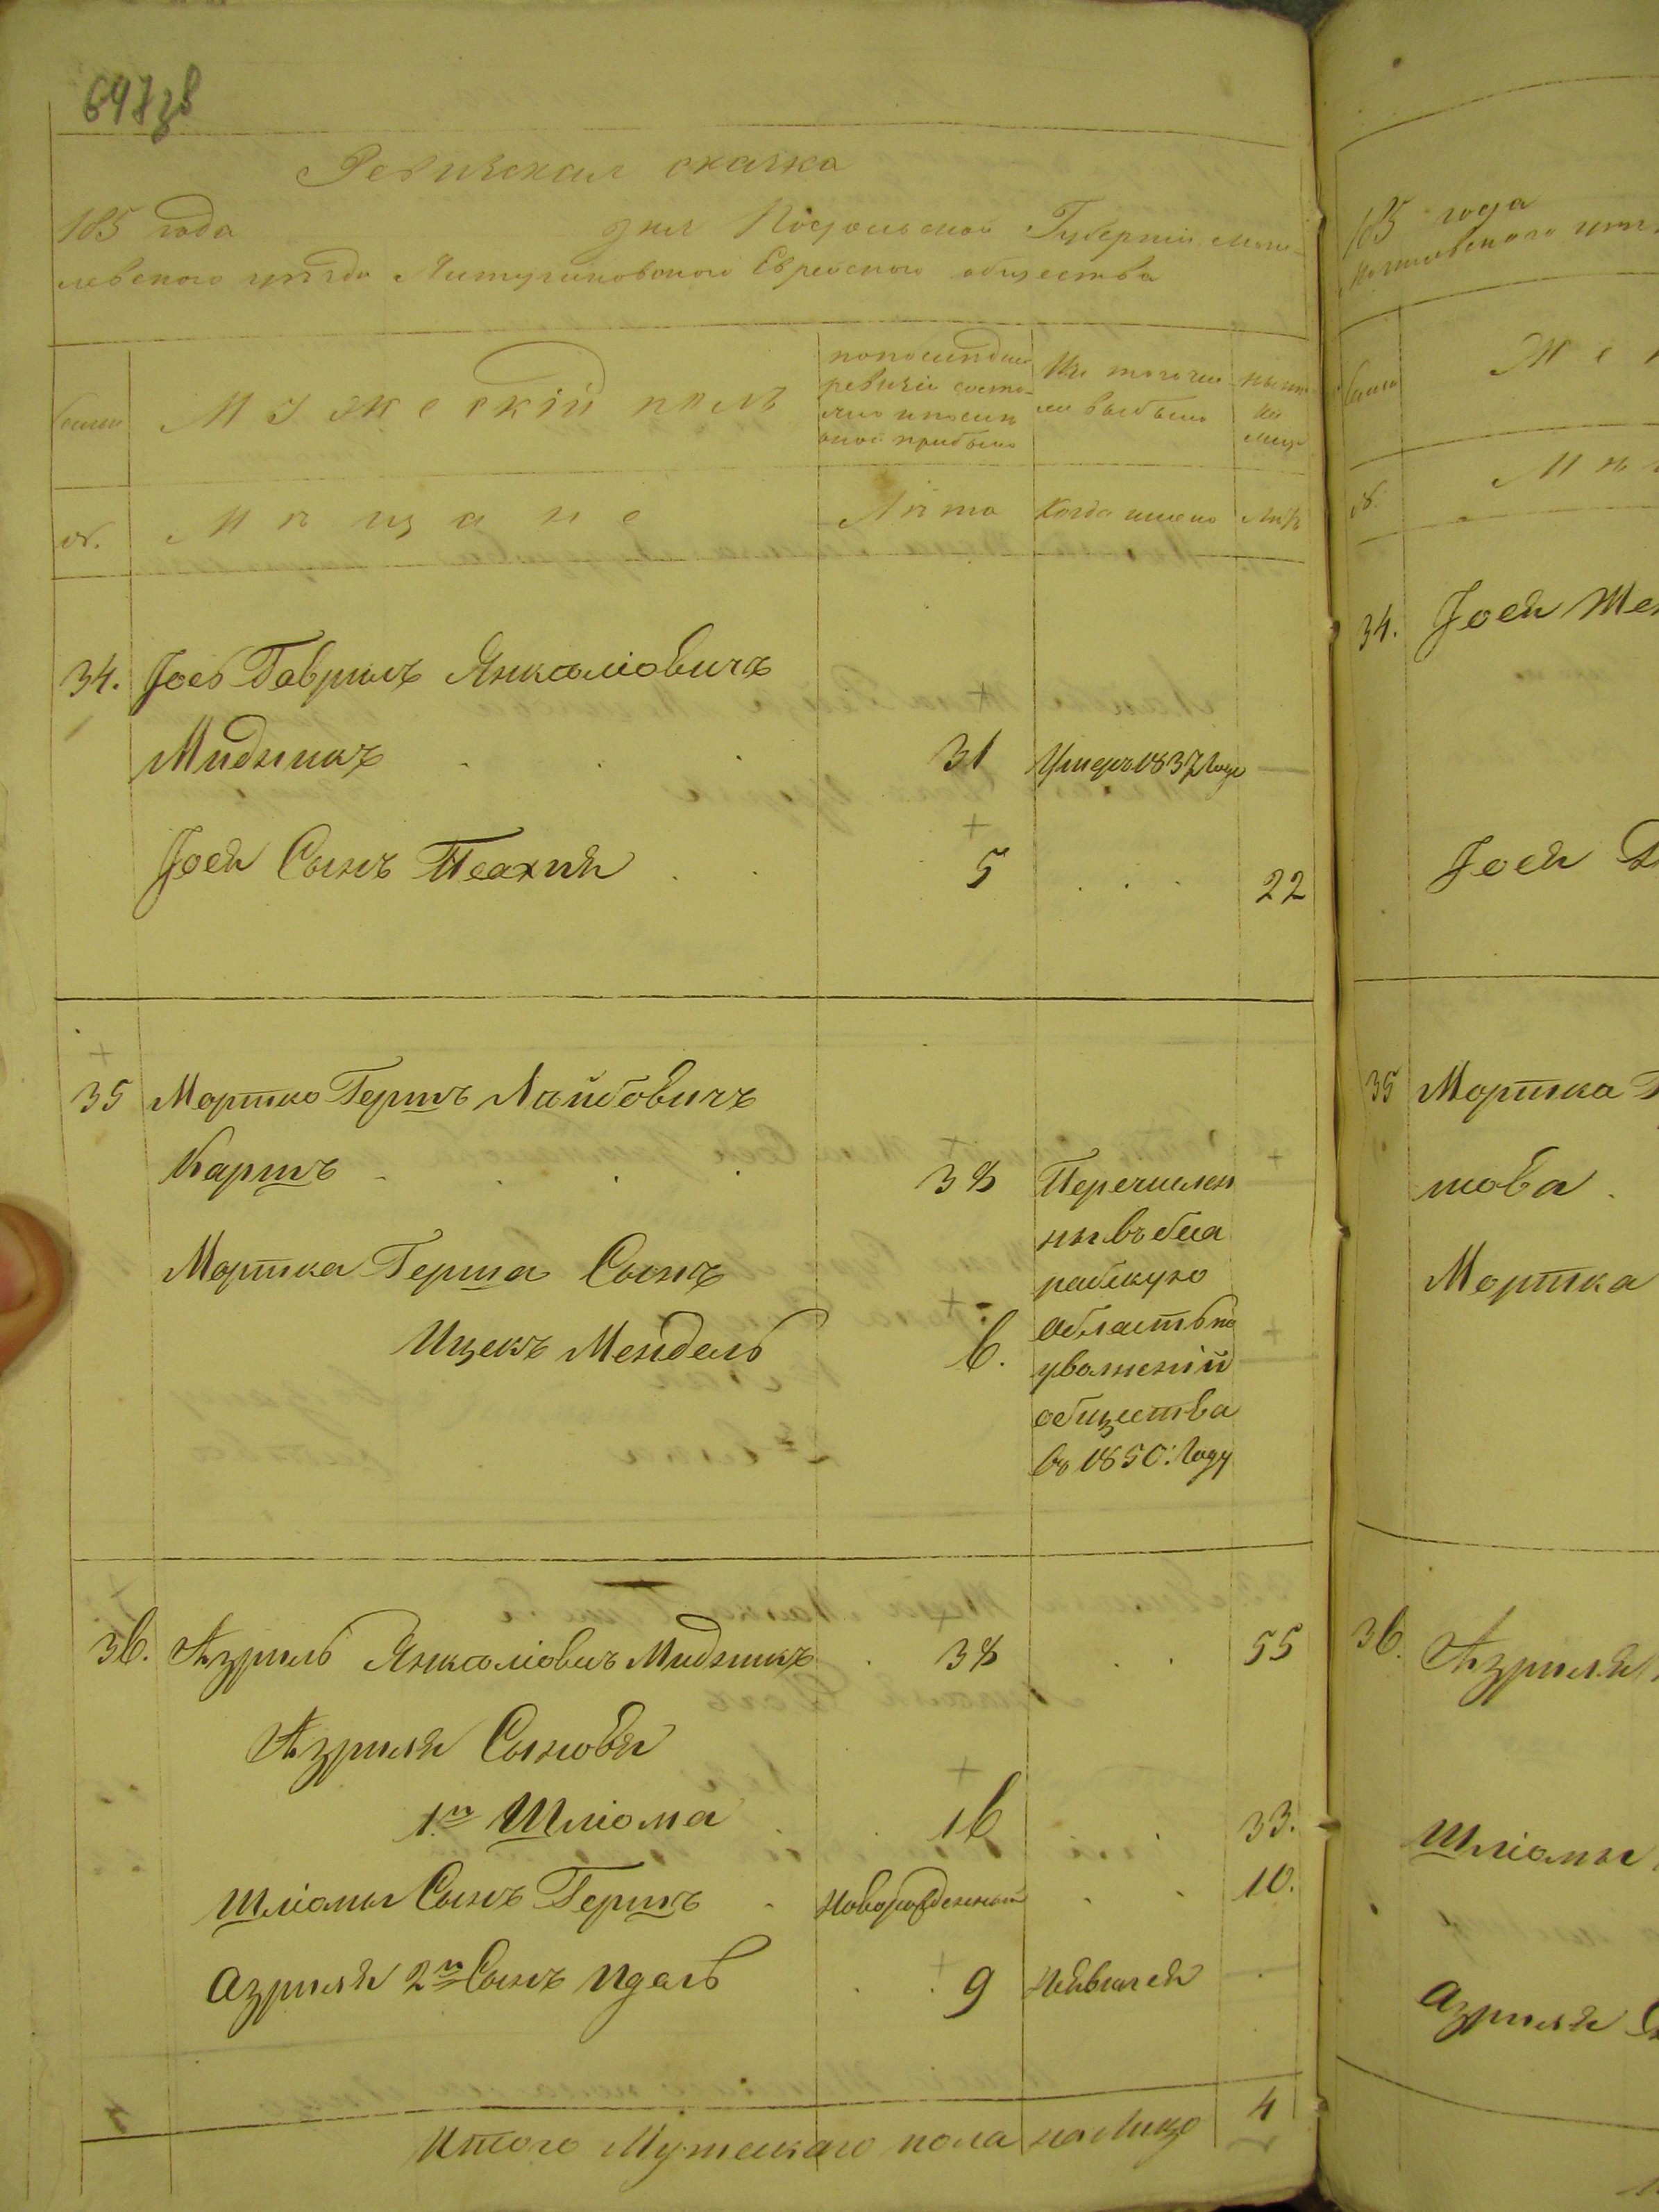 697 зв
Ревизская сказка
185 года дня Подольской Губернии Моги-
левского уезда Лучинчиковского Еврейского общества
семьи
Мужеский полъ
по последней
ревизіи состо-
яло и после
оной прибыло
Изъ того чис-
ла выбыло
ныне
на
лицо
№.
Мещане
Лета
Когда именно
Лета
34. Іось Гаврилъ Янкеліовичъ
Мидникъ 31 Умеръ 1837 Года —
Іося Сынъ Песахия 5 22
35 Мортко Гершъ Лайбовичъ
Каршъ 38 Перечислен
ны въ беса
рабскую
область по
Мортка Герша Сынъ
Ицекъ Мендель 6.
уволнении
общества
въ 1850: Году
36. Азриль Янкеліовичъ Мидникъ 38 55
Азриля Сыновья
1й Шліома 16 33.
Шліомы Сынъ Гершъ новорожденный 10.
Азриля 2й Сынъ Идель 9 —
Итого Мужескаго пола на лицо 4
185 года
Могилевского уезда
семьи
Же
№.
Ме
34. Іося Же
Іося
35 Мортка
шова
Мортка
36. Азриля
Шліомы
Азриля